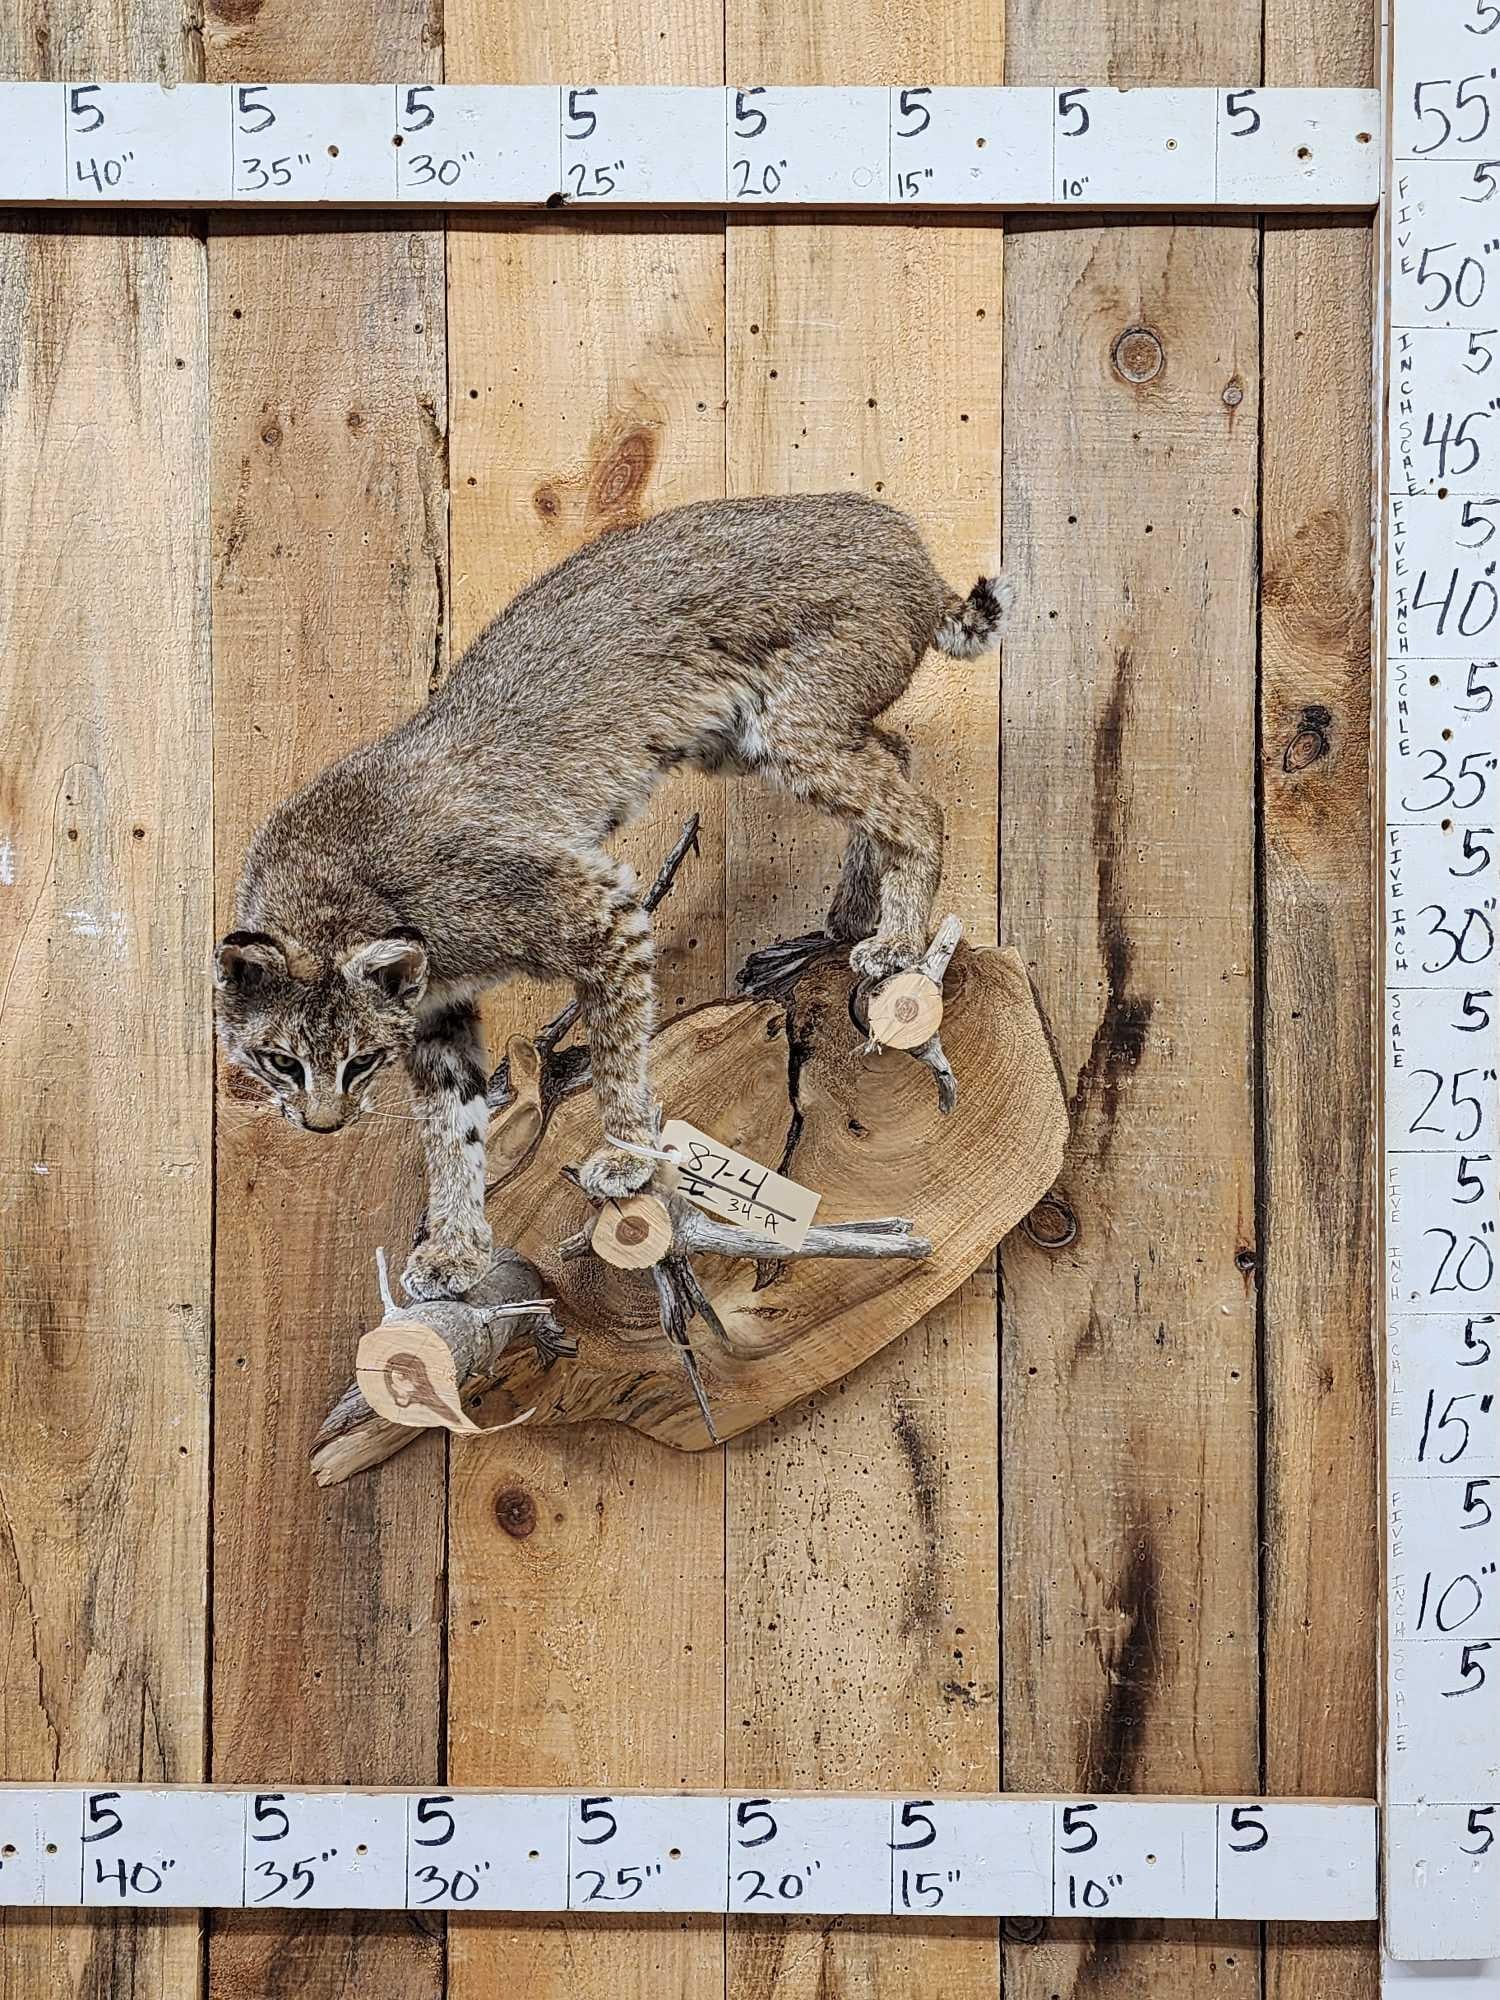 5 5 5 5 5 5 5 5
40" 35" 30" 25" 20" 15" 10"
5
55"
5
50"
5
45"
5
40"
5
35"
5
30"
5
25"
5
20"
5
15"
5
10"
5
5
FIVE
INCH
SCALE
FIVE
INCH
SCALE
FIVE
INCH
SCALE
FIVE
INCH
SCALE
FIVE
INCH
SCALE
87-4
34-A
5 5 5 5 5 5 5 5
40" 35" 30" 25" 20" 15" 10"